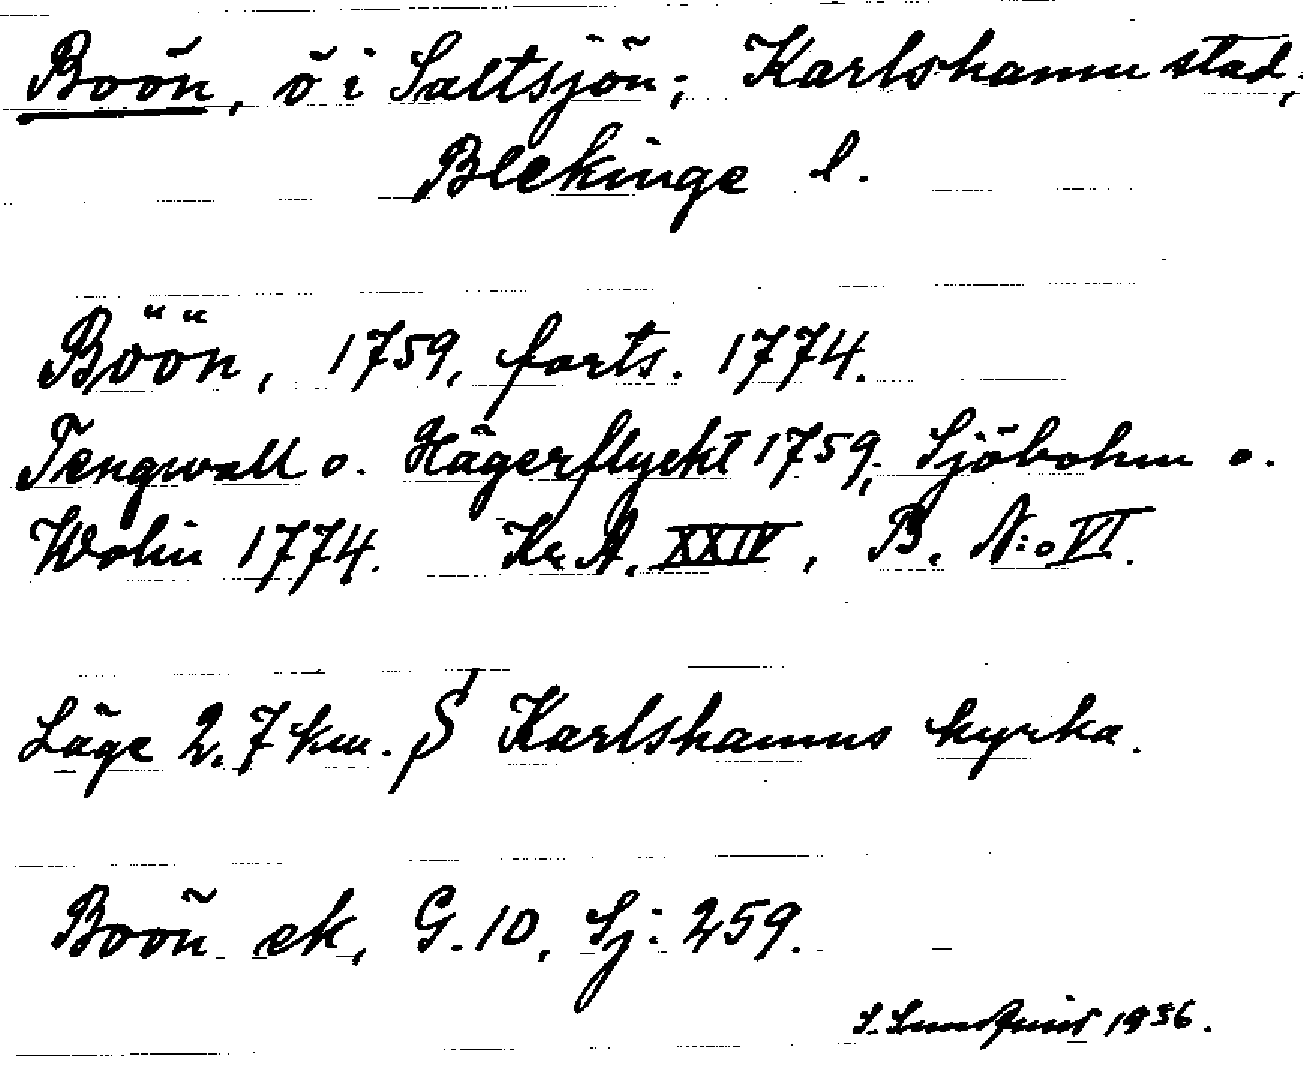 Boön, ö i Saltsjön; Karlshamn stad,
Blekinge l.
Böön, 1759, forts. 1774.
Tengwall o. Hägerflyckt 1759, Sjöbohm o.
Wolin 1774. Kr. A. XXIV, B. N:o VI.
Läge 2.7 km. S Karlshamns kyrka.
Boön ek, G. 10, Sj: 259.
S. 1936.